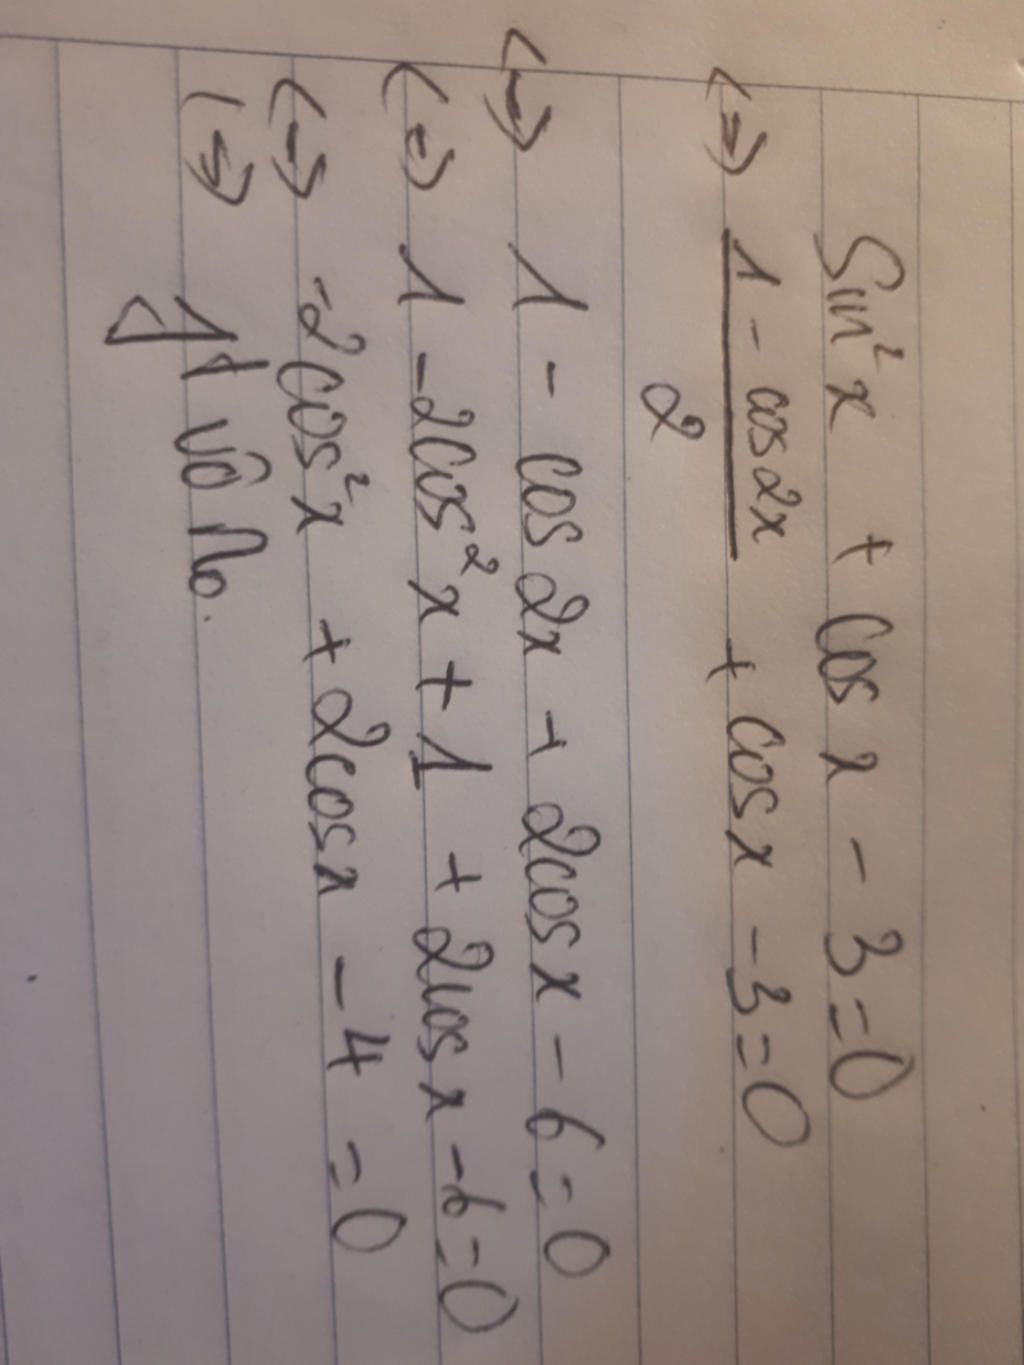 Sin²x + cos x - 3 = 0
<=> 1 - cos2x / 2 + cosx - 3 = 0
<=> 1 - cos2x + 2cosx - 6 = 0
<=> 1 - 2cos²x + 1 + 2cosx - 6 = 0
<=> -2cos²x + 2cosx - 4 = 0
<=> pt vô no.